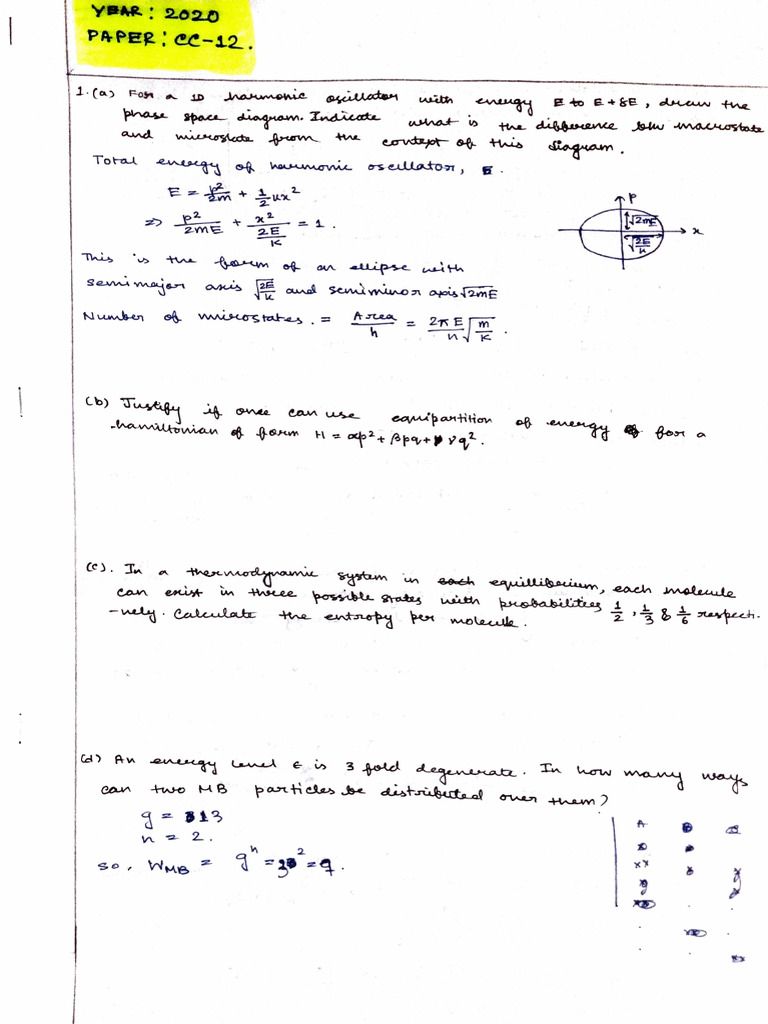 YEAR: 2020
PAPER: CC-12.
1. (a) For a 1D harmonic oscillator with energy E to E+δE, draw the
phase space diagram. Indicate what is the difference b/w macrostate
and microstate from the context of this diagram.
Total energy of harmonic oscillator, E.
E = p²/2m + 1/2 kx²
⇒ p²/2mE + x²/(2E/K) = 1.
p
√2mE
x
√2E/k
This is the form of an ellipse with
semimajor axis √2E/k and semiminor axis √2mE
Number of microstates. = Area/h = 2πE/h √m/K.
(b) Justify if once can use equipartition of energy for a
hamiltonian of form H = αp² + βpq + γq².
(c). In a thermodynamic system in equillibrium, each molecule
can exist in three possible states with probabilities 1/2, 1/3 & 1/6 respecti-
-vely. Calculate the entropy per molecule.
(d) An energy level ε is 3 fold degenerate. In how many ways
can two MB particles be distributed over them?
g = 3
n = 2.
so, W_MB = gⁿ = 3² = 9.